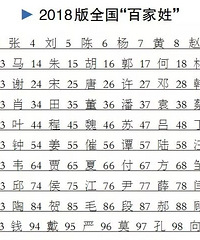 2018版全国“百家姓”
张 4 刘 5 陈 6 杨 7 黄 8 赵
3 马 14 朱 15 胡 16 郭 17 何 18 林
3 谢 24 宋 25 唐 26 许 27 邓 28
3 肖 34 田 35 董 36 潘 37 袁 38 蔡
3 叶 44 程 45 魏 46 苏 47 吕 48 丁
3 钟 54 姜 55 崔 56 谭 57 陆 58
3 韦 64 贾 65 夏 66 付 67 方 68
3 邱 74 侯 75 江 76 尹 77 薛 78 闫
3 陶 84 贺 85 毛 86 段 87 郝 88 顾
3 钱 94 戴 95 严 96 莫 97 孔 98 向